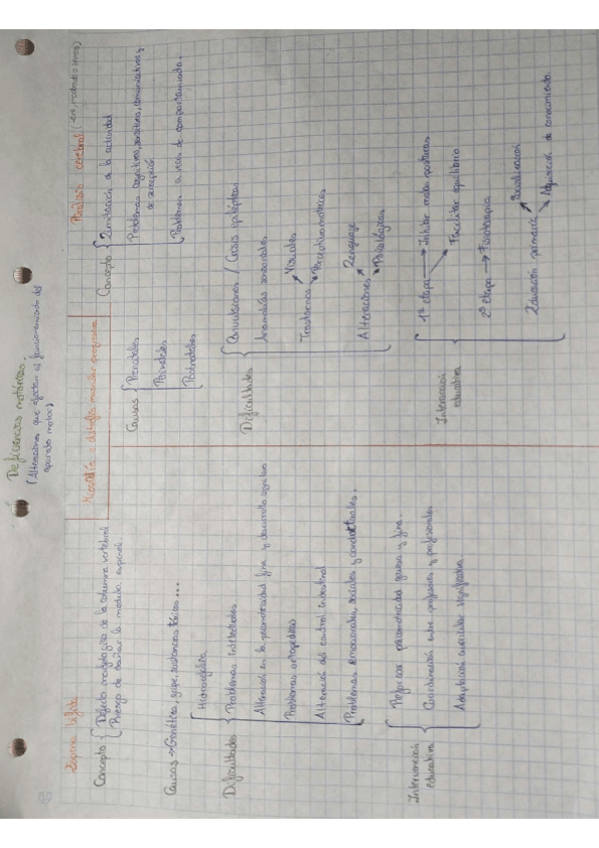 Deficiencias motóricas.
(Alteraciones que afectan al funcionamiento del
aparato motor)
Espina bífida
Concepto { Defecto morfológico de la columna vertebral
Riesgo de dañar la médula espinal
Causas → Genética, gripe, sustancias tóxicas ...
Dificultades { Hidrocefalia
Problemas intelectuales
Alteración en la psicomotricidad fina y desarrollo cognitivo
Problemas ortopédicos
Alteración del control intestinal
Problemas emocionales, sociales y conductuales.
Intervención
educativa { Reforzar psicomotricidad gruesa y fina.
Coordinación entre profesores y profesionales
Adaptación curricular significativa
Miopatía o distrofia muscular progresiva
Parálisis cerebral (leve, moderada o severa)
Concepto { Limitación a la actividad
Problemas cognitivos, sensitivos, comunicativos y
de percepción
Problemas a veces de comportamiento.
Causas { Prenatales
Perinatales
Postnatales
Dificultades { Convulsiones / Crisis epilépticas
Anomalías sensoriales
Trastornos → Visuales
→ Perceptivomotrices
Alteraciones → Lenguaje
→ Psicológicas
Intervención
educativa { 1ª etapa → Inhibir malas posturas
→ Facilitar equilibrio
2ª etapa → Fisioterapia
Educación psicomotriz → Socialización
→ Adquisición de conocimiento